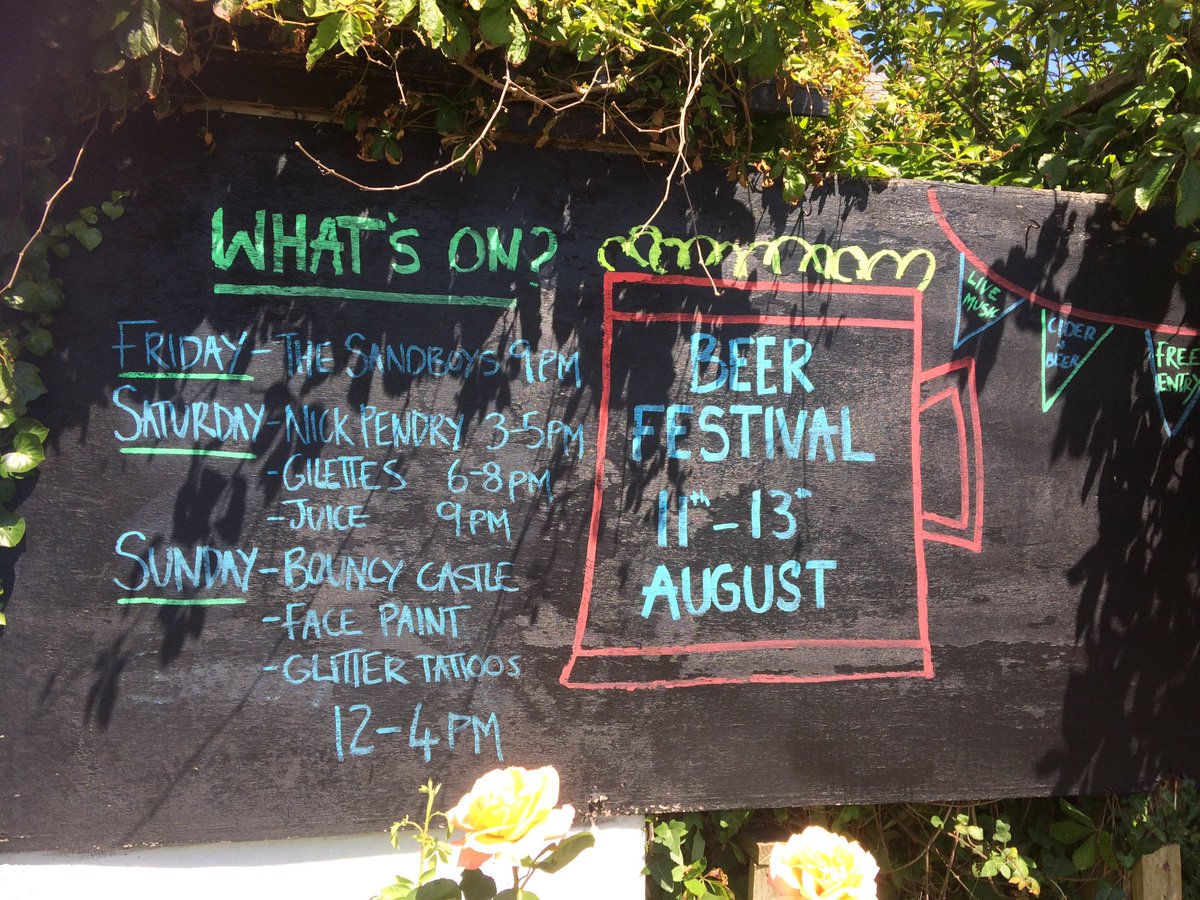 WHAT'S ON?
FRIDAY - THE SANDBOYS 9PM
SATURDAY - NICK PENDRY 3-5PM
- GILETTES 6-8PM
- JUICE 9PM
SUNDAY - BOUNCY CASTLE
- FACE PAINT
- GLITTER TATTOOS
12-4PM
BEER
FESTIVAL
11TH - 13TH
AUGUST
LIVE
MUSIC
CIDER
+
BEER
FREE
ENTRY